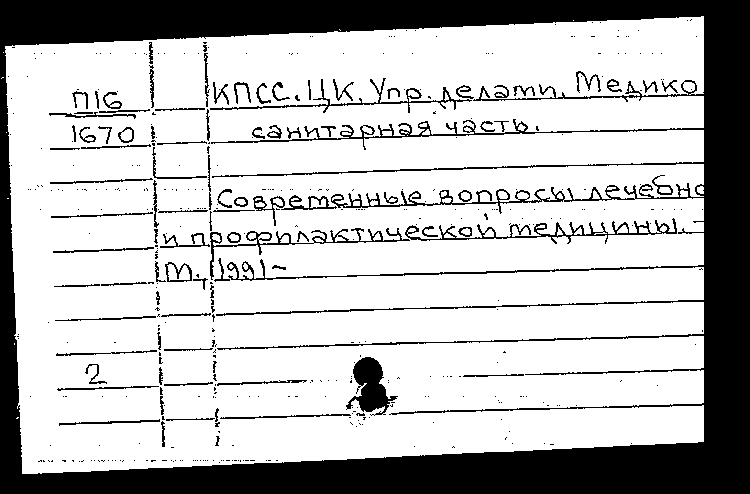 П16
1670
КПСС. ЦК. Упр. делами. Медико
санитарная часть.
Современные вопросы лечебно
и профилактической медицины. -
М., 1991-
2